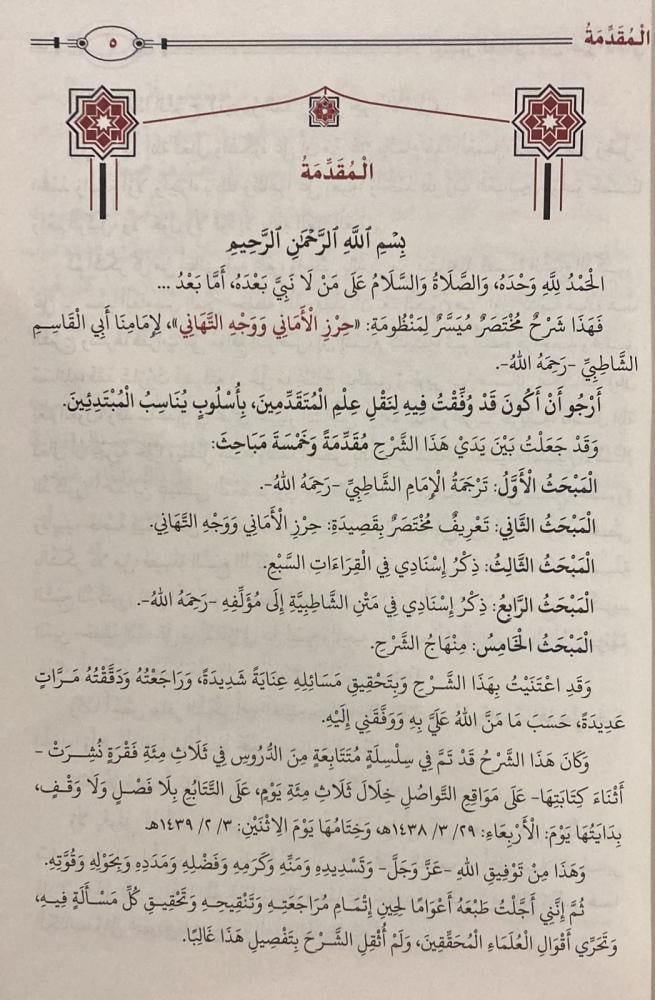 الْمُقَدِّمَةُ
٥
الْمُقَدِّمَةُ
بِسْمِ اللَّهِ الرَّحْمَٰنِ الرَّحِيمِ
الْحَمْدُ لِلَّهِ وَحْدَهُ، وَالصَّلَاةُ وَالسَّلَامُ عَلَى مَنْ لَا نَبِيَّ بَعْدَهُ، أَمَّا بَعْدُ ...
فَهَذَا شَرْحٌ مُخْتَصَرٌ مُيَسَّرٌ لِمَنْظُومَةِ: «حِرْزِ الْأَمَانِي وَوَجْهِ التَّهَانِي»، لِإِمَامِنَا أَبِي الْقَاسِمِ
الشَّاطِبِيِّ -رَحِمَهُ اللهُ-.
أَرْجُو أَنْ أَكُونَ قَدْ وُفِّقْتُ فِيهِ لِنَقْلِ عِلْمِ الْمُتَقَدِّمِينَ، بِأُسْلُوبٍ يُنَاسِبُ الْمُبْتَدِئِينَ.
وَقَدْ جَعَلْتُ بَيْنَ يَدَيْ هَذَا الشَّرْحِ مُقَدِّمَةً وَخَمْسَةَ مَبَاحِثَ:
الْمَبْحَثُ الْأَوَّلُ: تَرْجَمَةُ الْإِمَامِ الشَّاطِبِيِّ -رَحِمَهُ اللهُ-.
الْمَبْحَثُ الثَّانِي: تَعْرِيفٌ مُخْتَصَرٌ بِقَصِيدَةِ: حِرْزِ الْأَمَانِي وَوَجْهِ التَّهَانِي.
الْمَبْحَثُ الثَّالِثُ: ذِكْرُ إِسْنَادِي فِي الْقِرَاءَاتِ السَّبْعِ.
الْمَبْحَثُ الرَّابِعُ: ذِكْرُ إِسْنَادِي فِي مَتْنِ الشَّاطِبِيَّةِ إِلَى مُؤَلِّفِهِ -رَحِمَهُ اللهُ-.
الْمَبْحَثُ الْخَامِسُ: مِنْهَاجُ الشَّرْحِ.
وَقَدِ اعْتَنَيْتُ بِهَذَا الشَّرْحِ وَبِتَحْقِيقِ مَسَائِلِهِ عِنَايَةً شَدِيدَةً، وَرَاجَعْتُهُ وَدَقَّقْتُهُ مَرَّاتٍ
عَدِيدَةً، حَسَبَ مَا مَنَّ اللهُ عَلَيَّ بِهِ وَوَفَّقَنِي إِلَيْهِ.
وَكَانَ هَذَا الشَّرْحُ قَدْ تَمَّ فِي سِلْسِلَةٍ مُتَتَابِعَةٍ مِنَ الدُّرُوسِ فِي ثَلَاثِ مِئَةِ فَقْرَةٍ نُشِرَتْ -
أَثْنَاءَ كِتَابَتِهَا- عَلَى مَوَاقِعِ التَّوَاصُلِ خِلَالَ ثَلَاثِ مِئَةِ يَوْمٍ، عَلَى التَّتَابُعِ بِلَا فَصْلٍ وَلَا وَقْفٍ،
بِدَايَتُهَا يَوْمَ: الْأَرْبِعَاءِ: ٢٩/ ٣/ ١٤٣٨هـ، وَخِتَامُهَا يَوْمَ الِاثْنَيْنِ: ٣/ ٢/ ١٤٣٩هـ.
وَهَذَا مِنْ تَوْفِيقِ اللهِ -عَزَّ وَجَلَّ- وَتَسْدِيدِهِ وَمَنِّهِ وَكَرَمِهِ وَفَضْلِهِ وَمَدَدِهِ وَبِحَوْلِهِ وَقُوَّتِهِ.
ثُمَّ إِنَّنِي أَجَّلْتُ طَبْعَهُ أَعْوَامًا لِحِينِ إِتْمَامِ مُرَاجَعَتِهِ وَتَنْقِيحِهِ وَتَحْقِيقِ كُلِّ مَسْأَلَةٍ فِيهِ،
وَتَحَرِّي أَقْوَالِ الْعُلَمَاءِ الْمُحَقِّقِينَ، وَلَمْ أُثْقِلِ الشَّرْحَ بِتَفْصِيلِ هَذَا غَالِبًا.